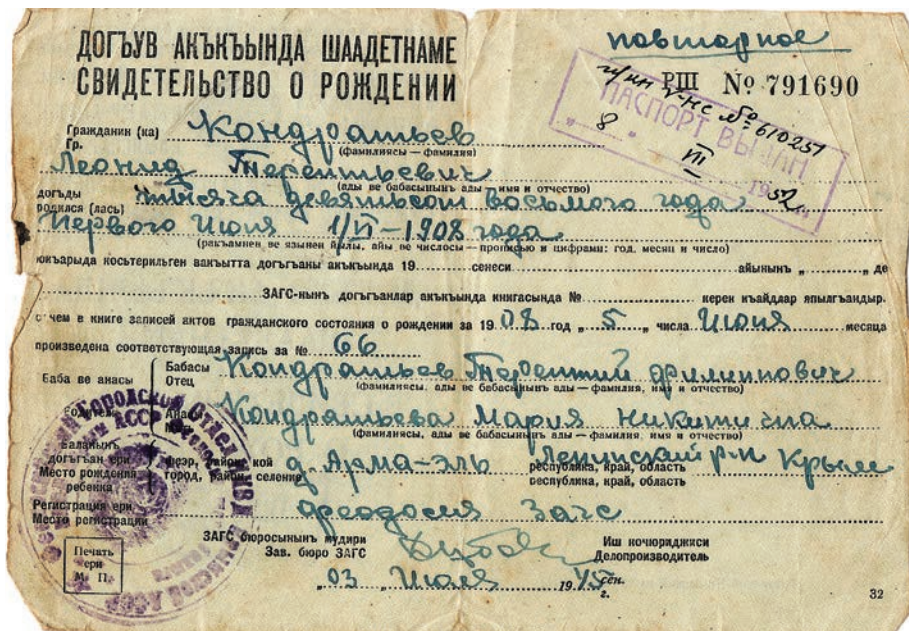 повторное
ДОГЪУВ АКЪКЪЫНДА ШААДЕТНАМЕ
СВИДЕТЕЛЬСТВО О РОЖДЕНИИ
РІІІ № 791690
ПАСПОРТ ВЫДАН
№ 610251
„ 8 „ VII 1952 г.
Гражданин (ка) Гр. Кондратьев
(фамилиясы — фамилия)
Леонид Терентьевич
(ады ве бабасынынъ ады — имя и отчество)
догъды родился (лась) тысяча девятьсот восьмого года
Первого Июня 1/VI-1908 года
(ракъамнен ве язынен йылы, айы ве числосы — прописью и цифрами: год, месяц и число)
юкъарыда косьтерильген вакъытта догъгъаны акъкъында 19 сенеси айынынъ „ „ де
ЗАГС-нынъ догъгъанлар акъкъында книгасында № керен къайдлар япылгъандыр.
о чем в книге записей актов гражданского состояния о рождении за 1908 год „ 5 „ числа Июня месяца
произведена соответствующая запись за № 66
Баба ве анасы Бабасы Отец Кондратьев Терентий Филиппович
(фамилиясы, ады ве бабасынынъ ады — фамилия, имя и отчество)
Родители Анасы Кондратьева Мария Никитична
(фамилиясы, ады ве бабасынынъ ады — фамилия, имя и отчество)
Баланынъ догъгъан ери Место рождения ребенка город, район, селение д. Арма-эль Ленинский р-н Крым
республика, край, область
республика, край, область
Регистрация ери Место регистрации Феодосия Загс
ЗАГС бюросынынъ мудири
Зав. бюро ЗАГС
Иш ючюриджиси
Делопроизводитель
Печать ери М. П.
„ 03 „ Июля 1945 сен. г.
32